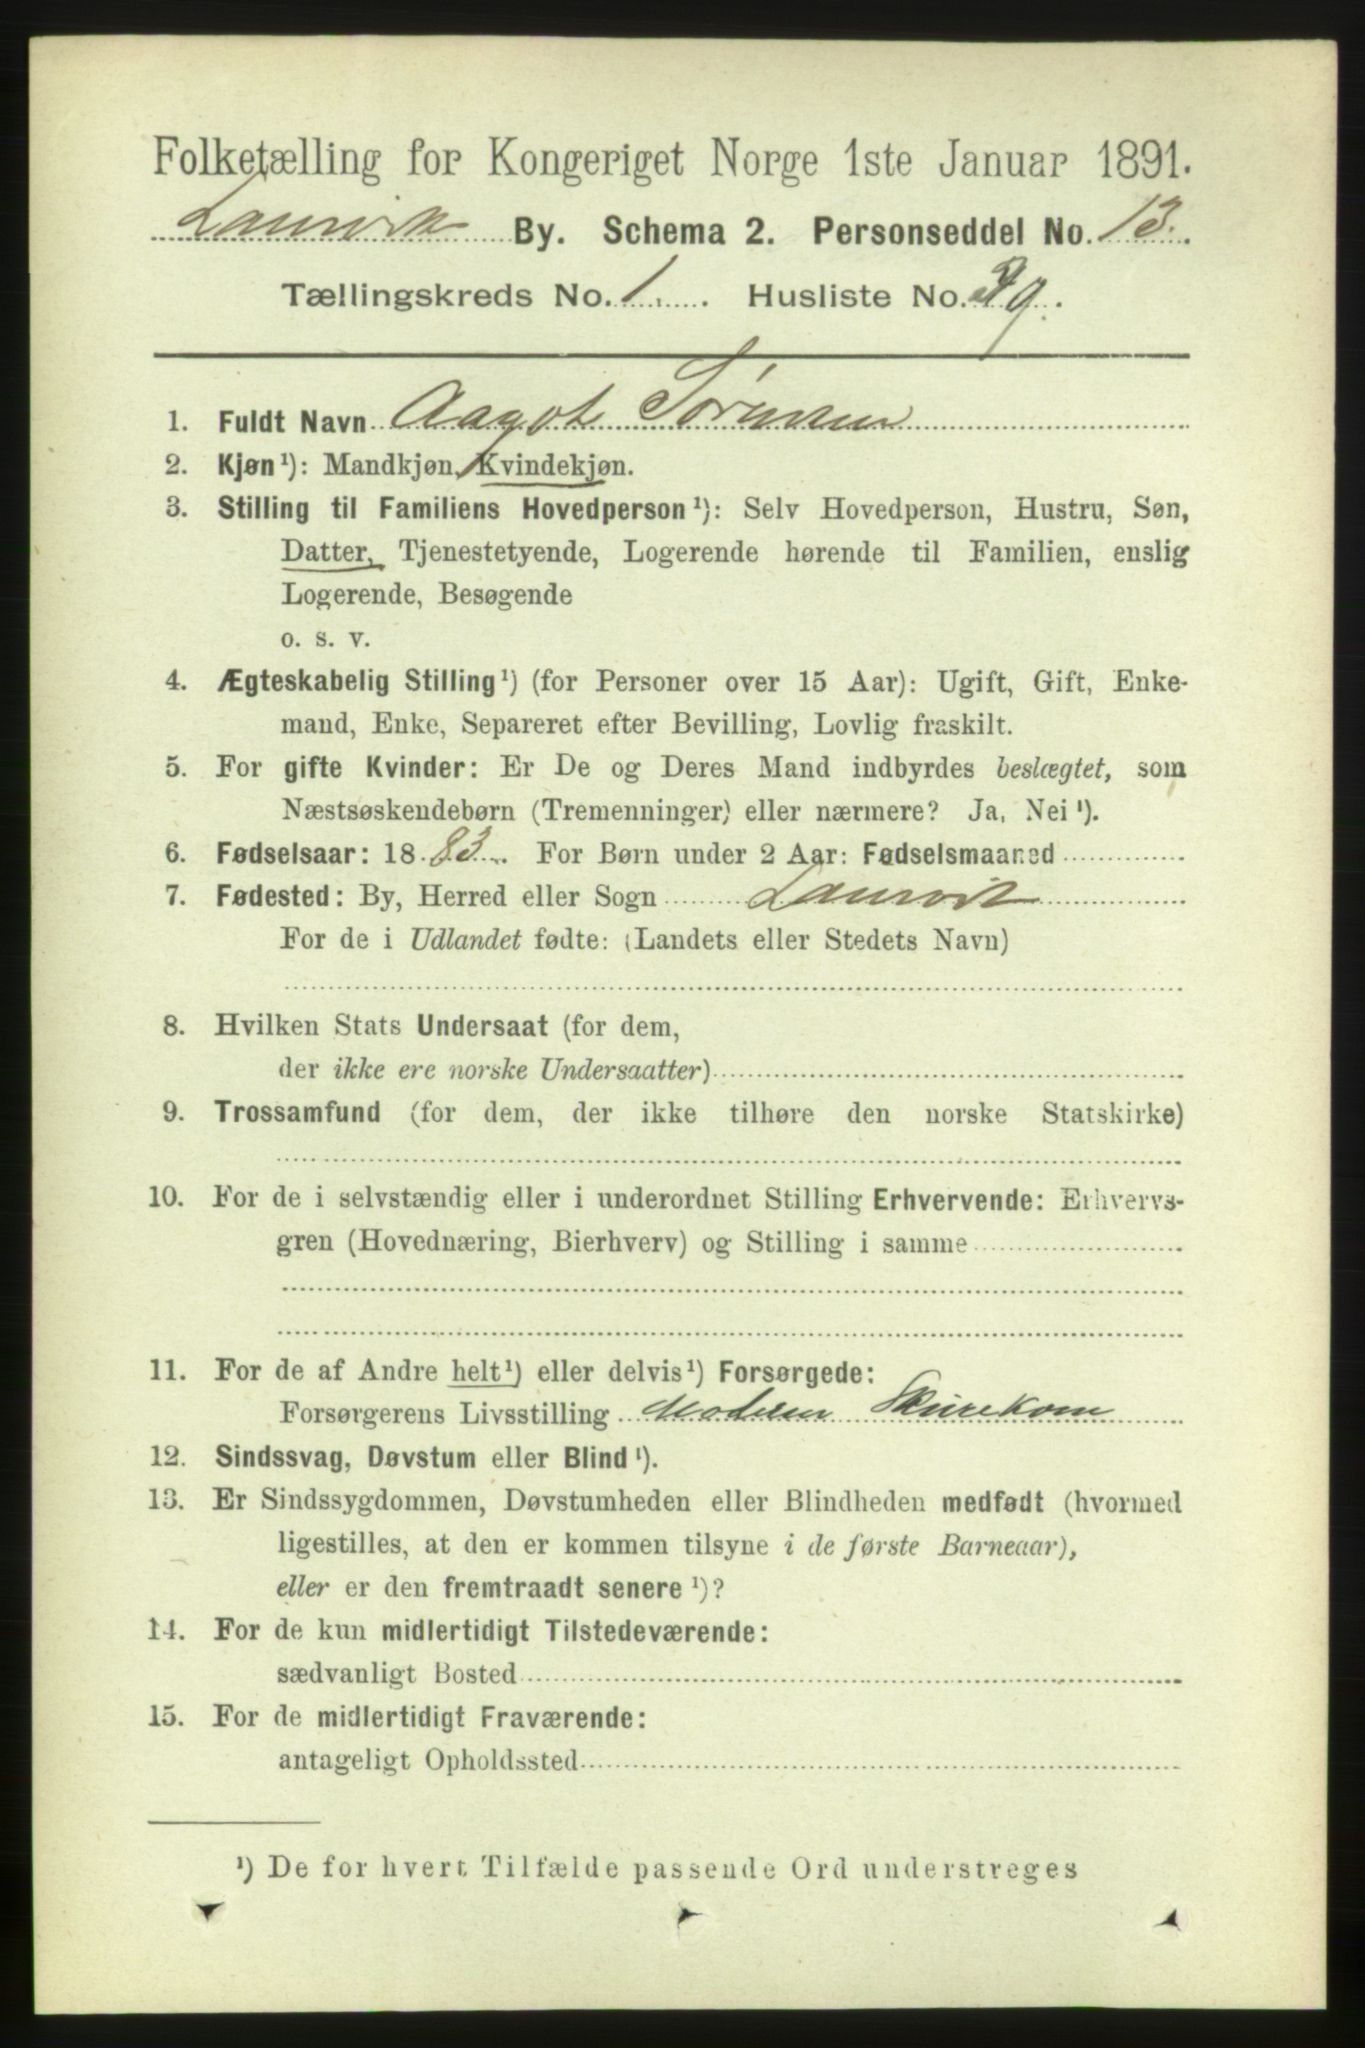 Folketælling for Kongeriget Norge 1ste Januar 1891.
Laurvik By. Schema 2. Personseddel No. 13.
Tællingskreds No. 1. Husliste No. 39.
1. Fuldt Navn Aagot Sørensen
2. Kjøn¹): Mandkjøn, Kvindekjøn.
3. Stilling til Familiens Hovedperson¹): Selv Hovedperson, Hustru, Søn,
Datter, Tjenestetyende, Logerende hørende til Familien, enslig
Logerende, Besøgende
o. s. v.
4. Ægteskabelig Stilling¹) (for Personer over 15 Aar): Ugift, Gift, Enke-
mand, Enke, Separeret efter Bevilling, Lovlig fraskilt.
5. For gifte Kvinder: Er De og Deres Mand indbyrdes beslægtet, som
Næstsøskendebørn (Tremenninger) eller nærmere? Ja, Nei¹).
6. Fødselsaar: 1883. For Børn under 2 Aar: Fødselsmaaned
7. Fødested: By, Herred eller Sogn Laurvik
For de i Udlandet fødte: (Landets eller Stedets Navn)
8. Hvilken Stats Undersaat (for dem,
der ikke ere norske Undersaatter)
9. Trossamfund (for dem, der ikke tilhøre den norske Statskirke)
10. For de i selvstændig eller i underordnet Stilling Erhvervende: Erhvervs-
gren (Hovednæring, Bierhverv) og Stilling i samme
11. For de af Andre helt¹) eller delvis¹) Forsørgede:
Forsørgerens Livsstilling Moderen Skurekone
12. Sindssvag, Døvstum eller Blind¹).
13. Er Sindssygdommen, Døvstumheden eller Blindheden medfødt (hvormed
ligestilles, at den er kommen tilsyne i de første Barneaar),
eller er den fremtraadt senere¹)?
14. For de kun midlertidigt Tilstedeværende:
sædvanligt Bosted
15. For de midlertidigt Fraværende:
antageligt Opholdssted
¹) De for hvert Tilfælde passende Ord understreges